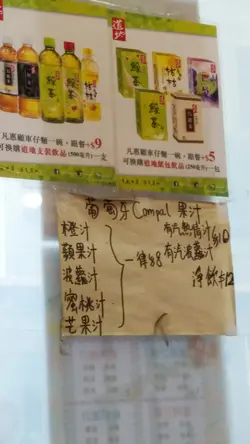 道地
道地
凡惠顧車仔麵一碗，跟餐+$9
可換購道地支裝飲品(500毫升)一支
凡惠顧車仔麵一碗，跟餐+$5
可換購道地紙包飲品(250毫升)一包
葡萄牙Compal果汁
橙汁
蘋果汁
菠蘿汁
蜜桃汁
芒果汁
一律$8
有汽熱情汁
有汽菠蘿汁
$10
淨飲+$12